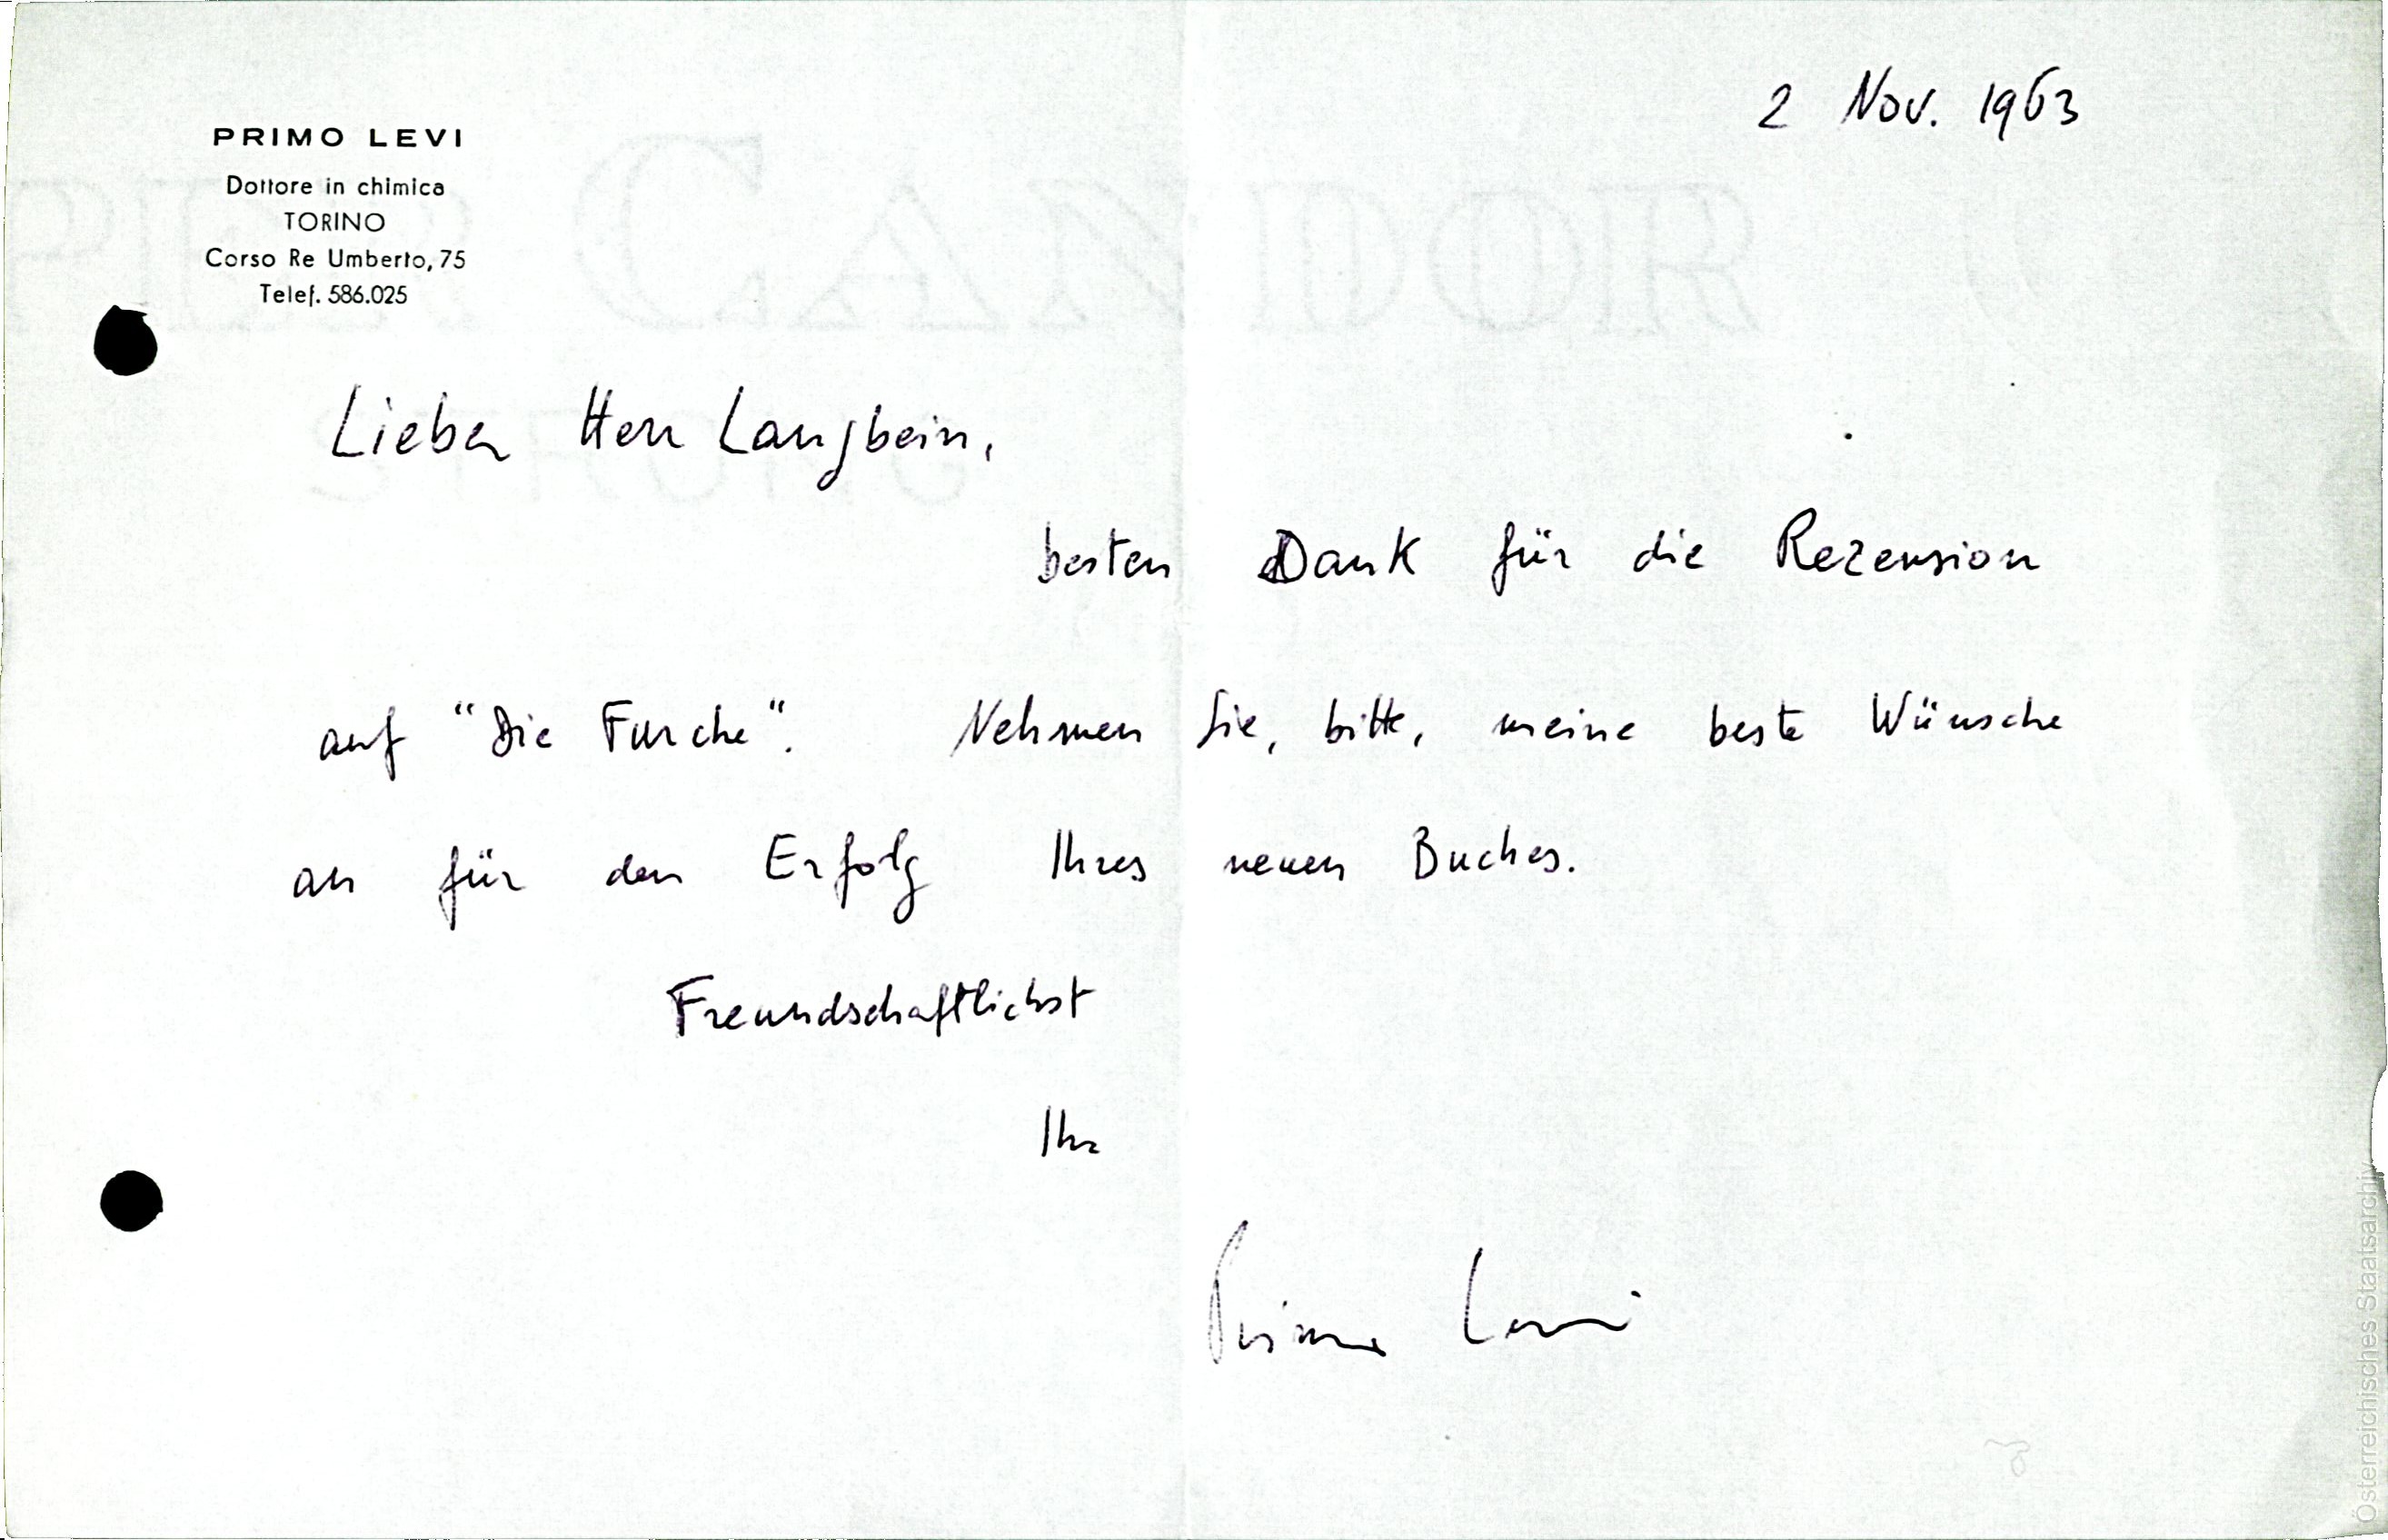 2 Nov. 1963
PRIMO LEVI
Dottore in chimica
TORINO
Corso Re Umberto, 75
Telef. 586.025
Lieber Herr Langbein,
besten Dank für die Rezension
auf "Die Furche". Nehmen Sie, bitte, meine beste Wünsche
an für den Erfolg Ihres neuen Buches.
Freundschaftlichst
Ihr
Primo Levi
Österreichisches Staatsarchiv